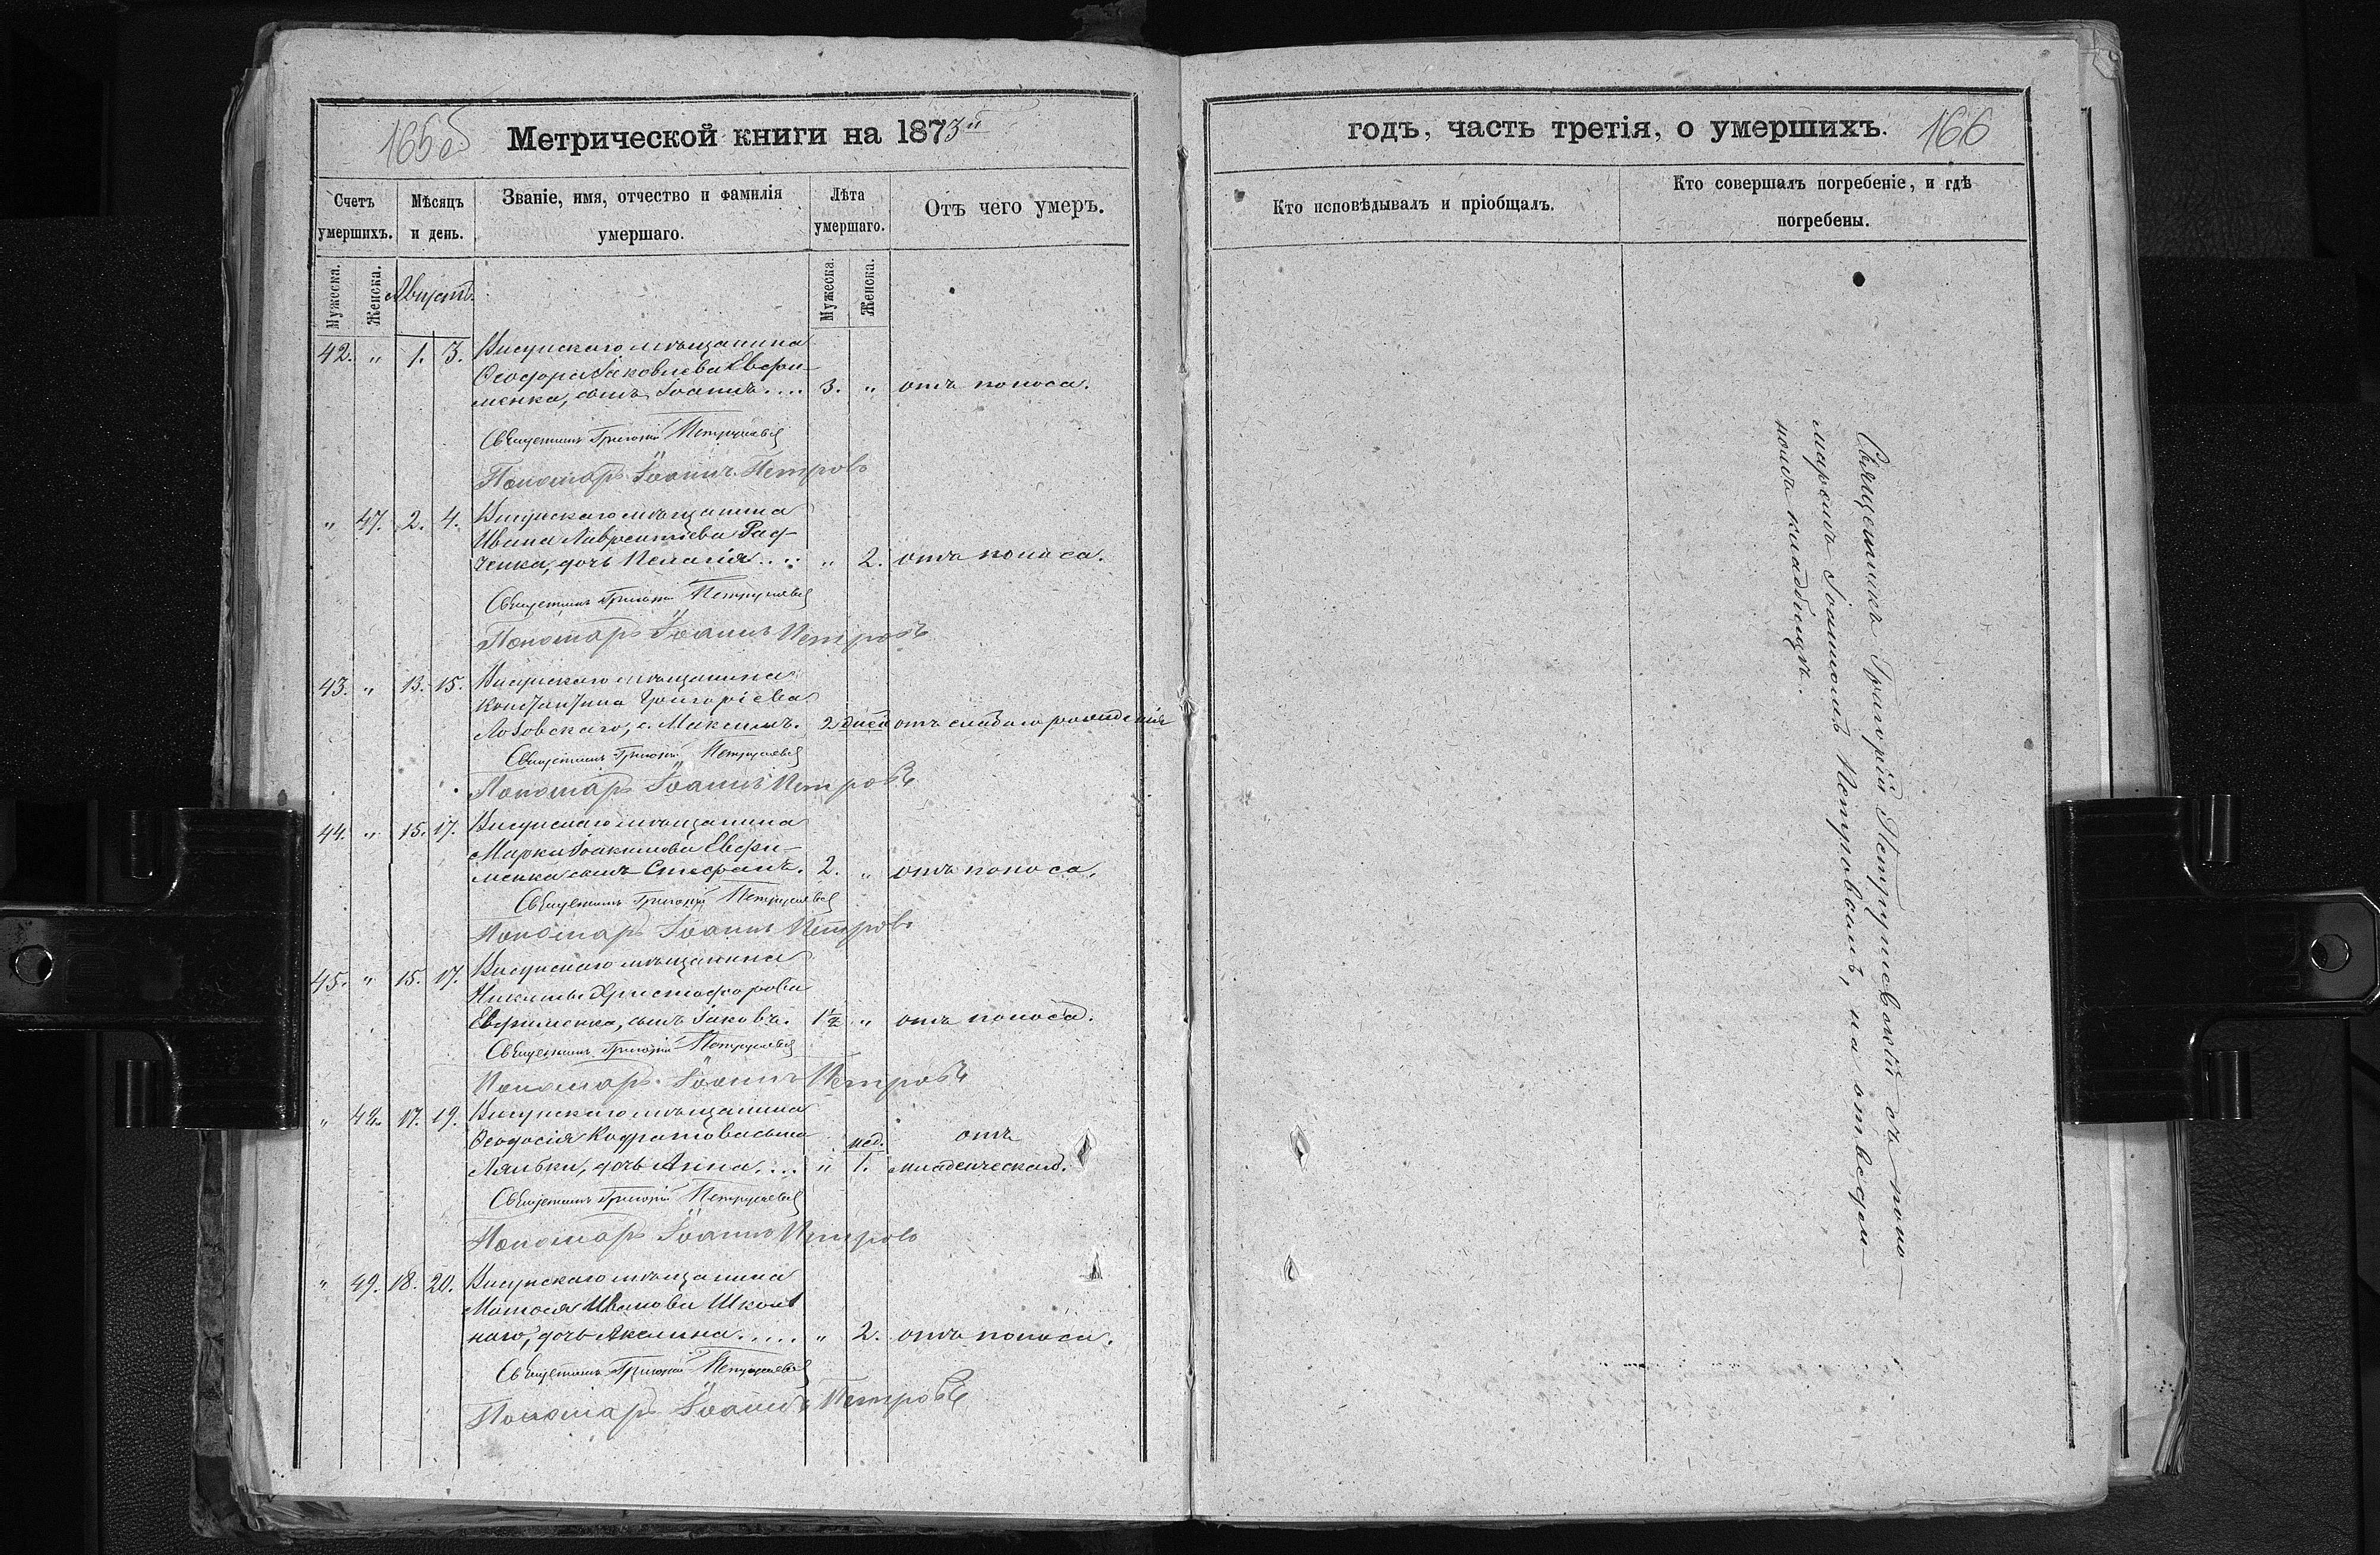 165об
Метрической книги на 1873й
Счетъ умершихъ.
Мѣсяцъ и день.
Званіе, имя, отчество и фамилія умершаго.
Лѣта умершаго.
Отъ чего умеръ.
Мужеска.
Женска.
Августъ.
Мужеска.
Женска.
42. " 1. 3. Висунскаго мѣщанина
Ѳеодора Іаковлева Евфи-
менка, сынъ Іоаннъ.... 3. " отъ поноса.
Священникъ Григорій Петрушевскій
Пономарь Іоаннъ Петровъ
" 47. 2. 4. Висунскаго мѣщанина
Ивана Лаврентіева Рад-
ченка, дочь Пелагія.... " 2. отъ поноса.
Священникъ Григорій Петрушевскій
Пономарь Іоаннъ Петровъ
43. " 13. 15. Висунскаго мѣщанина
Константина Григоріева
Лозовскаго, с. Максимъ. 2 дней отъ слабаго рожденія
Священникъ Григорій Петрушевскій
Пономарь Іоаннъ Петровъ
44. " 15. 17. Висунскаго мѣщанина
Марка Іоакимова Евфи-
менка сынъ Стефанъ. 2. " отъ поноса.
Священникъ Григорій Петрушевскій
Пономарь Іоаннъ Петровъ
45. " 15. 17. Висунскаго мѣщанина
Никиты Христофорова
Евфименка, сынъ Іаковъ. 1½ " отъ поноса.
Священникъ Григорій Петрушевскій
Пономарь Іоаннъ Петровъ
" 48. 17. 19. Висунскаго мѣщанина
Ѳеодосія нед. отъ
дочь Анна.... " 1. младенческой.
Священникъ Григорій Петрушевскій
Пономарь Іоаннъ Петровъ
" 49. 18. 20. Висунскаго мѣщанина
Иванова Школь
наго, дочь Акилина.... " 2. отъ поноса.
Священникъ Григорій Петрушевскій
Пономарь Іоаннъ Петровъ
годъ, часть третія, о умершихъ.
166
Кто исповѣдывалъ и пріобщалъ.
Кто совершалъ погребеніе, и гдѣ погребены.
Священникъ Григорій Петрушевскій съ поно-
маремъ Іоанномъ Петровымъ, на отведен-
номъ кладбищѣ.